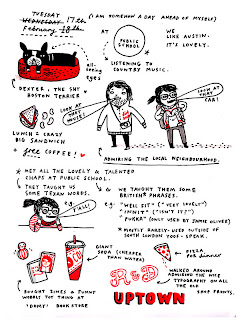 TUESDAY 17th
WEDNESDAY
February 18th
(I AM SOMEHOW A DAY AHEAD OF MYSELF)
AT
PUBLIC
SCHOOL
WE
LIKE AUSTIN.
IT'S LOVELY.
all-
seeing
eyes
LISTENING TO
COUNTRY MUSIC.
DEXTER, THE SHY
BOSTON TERRIER
LOOK AT
THAT
HOUSE!
LOOK AT
THAT
CAR!
LUNCH = CRAZY
BIG SANDWICH
+ free COFFEE!
ADMIRING THE LOCAL NEIGHBOURHOOD.
* MET ALL THE LOVELY & TALENTED
CHAPS AT PUBLIC SCHOOL.
* THEY TAUGHT US
SOME TEXAN WORDS.
* WE TAUGHT THEM SOME
BRITISH* PHRASES.
e.g.
Y'ALL!
e.g. "WELL GIT" ("VERY LOVELY")
"INNIT" ("ISN'T IT?")
"PUKKA" (ONLY USED BY JAMIE OLIVER)
* MOSTLY RARELY-USED OUTSIDE OF
SOUTH LONDON YOOF-SPEAK.
GIANT
SODA (CHEAPER
THAN WATER)
PIZZA
FOR dinner
R&D
WALKED AROUND
ADMIRING THE NICE
TYPOGRAPHY ON ALL
THE OLD
SHOP FRONTS.
BOUGHT ZINES & FUNNY
WOBBLY TOY THING AT
"DOMY" BOOK STORE
UPTOWN